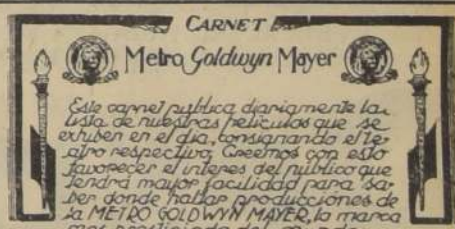 CARNET
Metro Goldwyn Mayer
Este carnet publica diariamente la
lista de nuestras películas que se
exhiben en el día, consignando el te-
atro respectivo. Creemos con esto
favorecer el interes del público que
tendrá mayor facilidad para sa-
ber donde hallar producciones de
la METRO GOLDWYN MAYER, la marca
mas prestigiada del mundo